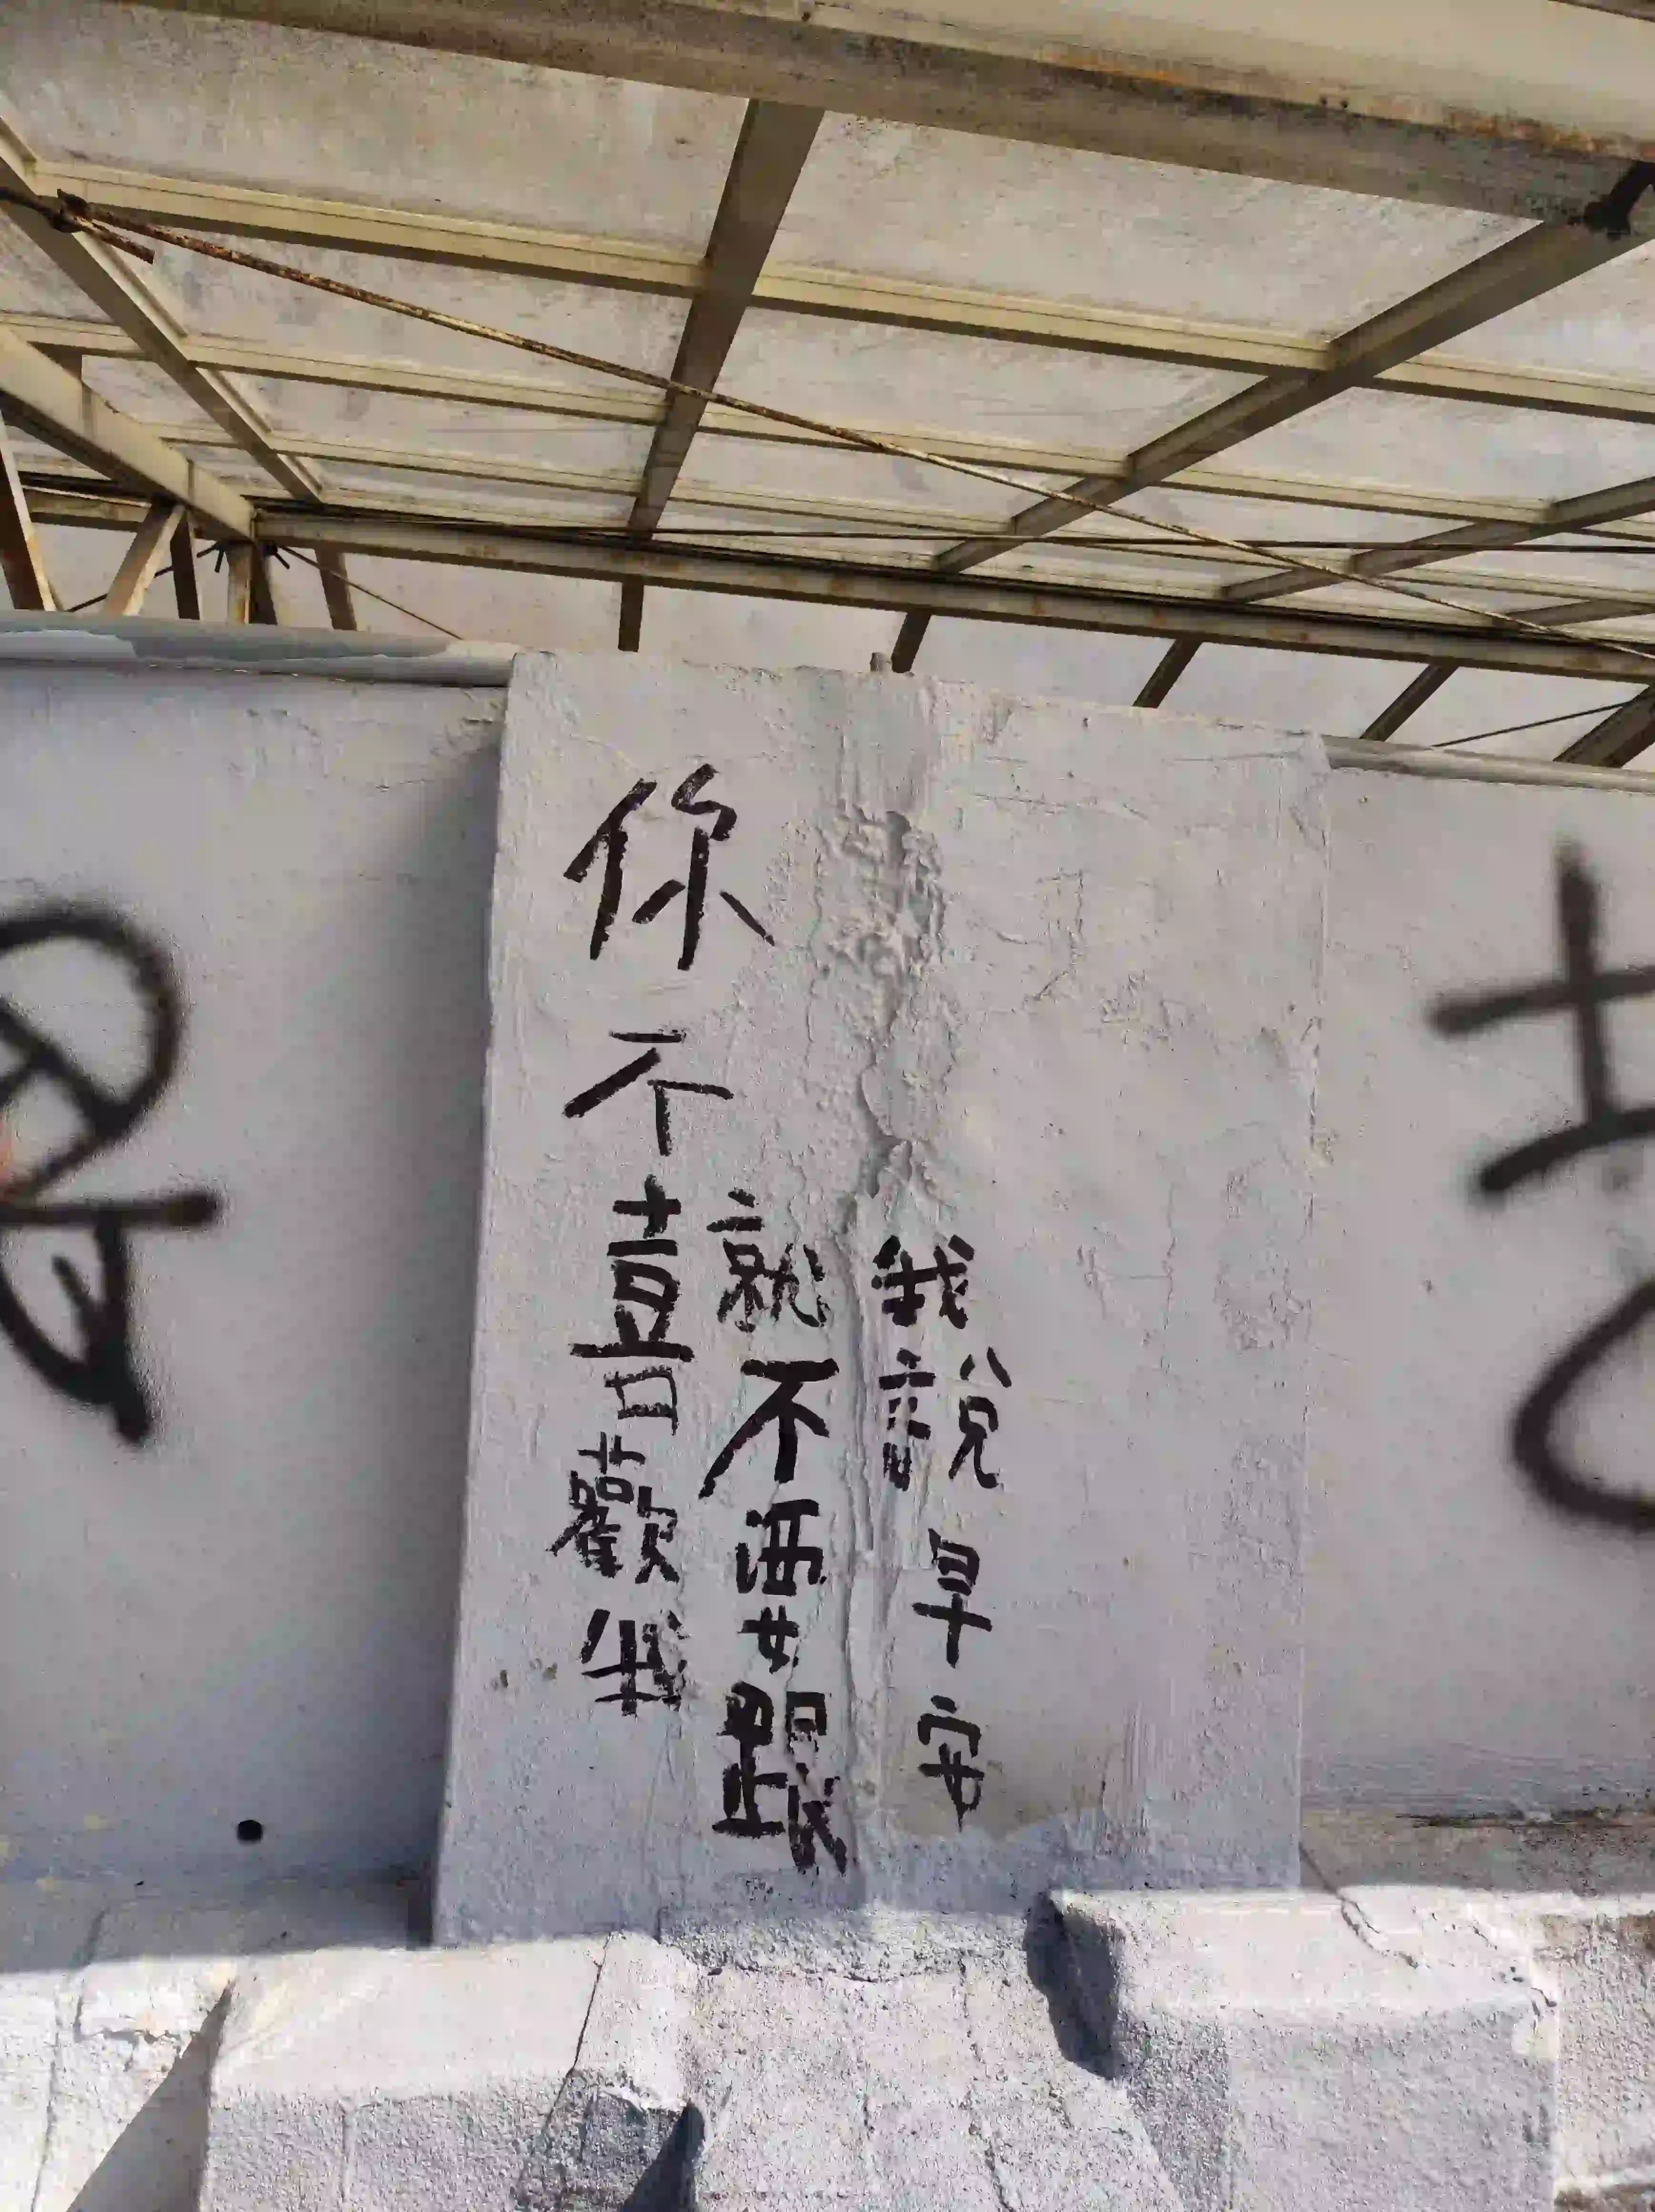 你不喜歡我
就不要跟
我說早安